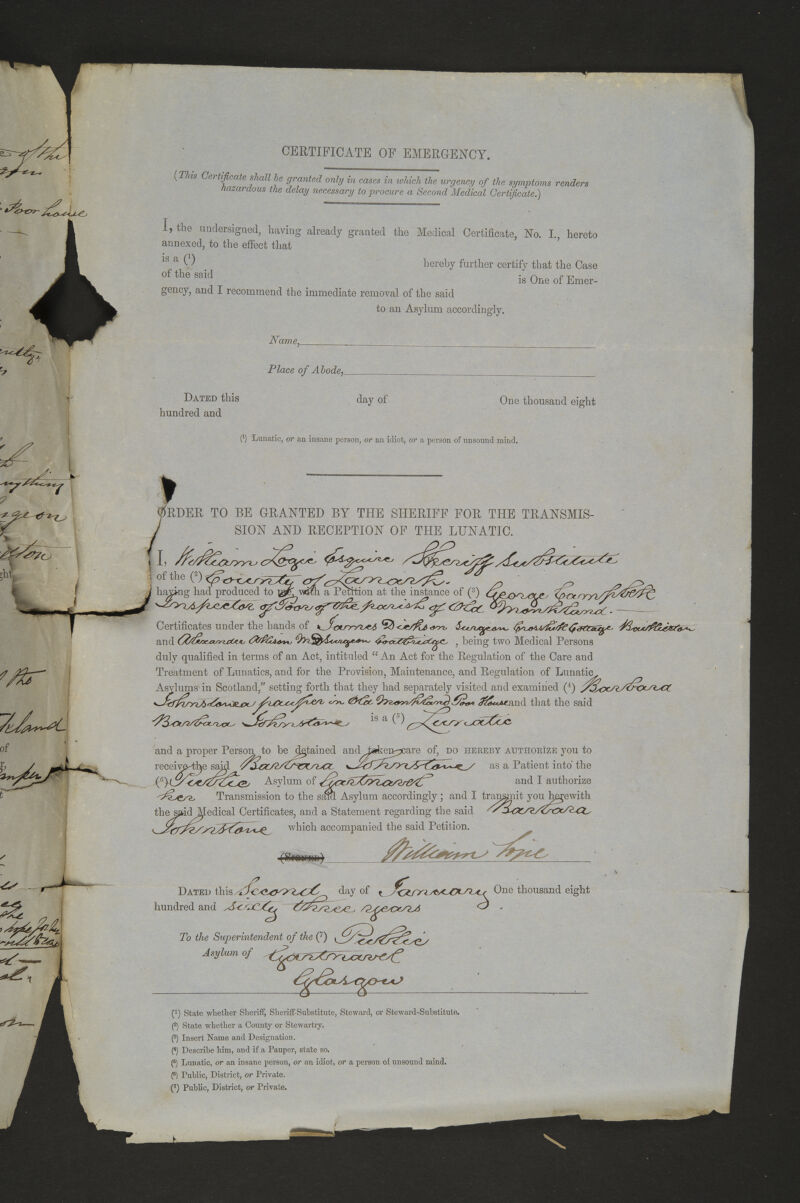 of the
Poor house
CERTIFICATE OF EMERGENCY.
(This Certificate shall be granted only in cases in which the urgency of the symptoms renders
hazardous the delay necessary to procure a Second Medical Certificate.)
I, the undersigned, having already granted the Medical Certificate, No. I., hereto
annexed, to the effect that
is a (¹) hereby further certify that the Case
of the said is One of Emer-
gency, and I recommend the immediate removal of the said
to an Asylum accordingly.
Name,
Place of Abode,
DATED this day of One thousand eight
hundred and
(¹) Lunatic, or an insane person, or an idiot, or a person of unsound mind.
ORDER TO BE GRANTED BY THE SHERIFF FOR THE TRANSMIS-
SION AND RECEPTION OF THE LUNATIC.
I, William Logie Esquire Sheriff Substitute
of the (²) County of Lanark.
having had produced to me, with a Petition at the instance of (³) George Campbell
Inspector of Poor of the parish of Old Monkland.
Certificates under the hands of James Dickson Surgeon Crosshill Cottage Baillieston
and Alexander Allison M.D Surgeon Coatbridge, being two Medical Persons
duly qualified in terms of an Act, intituled "An Act for the Regulation of the Care and
Treatment of Lunatics, and for the Provision, Maintenance, and Regulation of Lunatic
Asylums in Scotland," setting forth that they had separately visited and examined (⁴) Barbara
Johnstone a pauper in Old Monkland Poor House and that the said
Barbara Johnstone is a (⁵) Lunatic
and a proper Person to be detained and taken care of, DO HEREBY AUTHORIZE you to
receive the said Barbara Johnstone as a Patient into the
(⁶) Public Asylum of Gartnavel and I authorize
her Transmission to the said Asylum accordingly; and I transmit you herewith
the said Medical Certificates, and a Statement regarding the said Barbara
Johnstone which accompanied the said Petition.
(Signed) William Logie
DATED this Second day of January One thousand eight
hundred and Sixty three years.
To the Superintendent of the (⁷) Public
Asylum of Gartnavel
Glasgow
(¹) State whether Sheriff, Sheriff-Substitute, Steward, or Steward-Substitute.
(²) State whether a County or Stewartry.
(³) Insert Name and Designation.
(⁴) Describe him, and if a Pauper, state so.
(⁵) Lunatic, or an insane person, or an idiot, or a person of unsound mind.
(⁶) Public, District, or Private.
(⁷) Public, District, or Private.